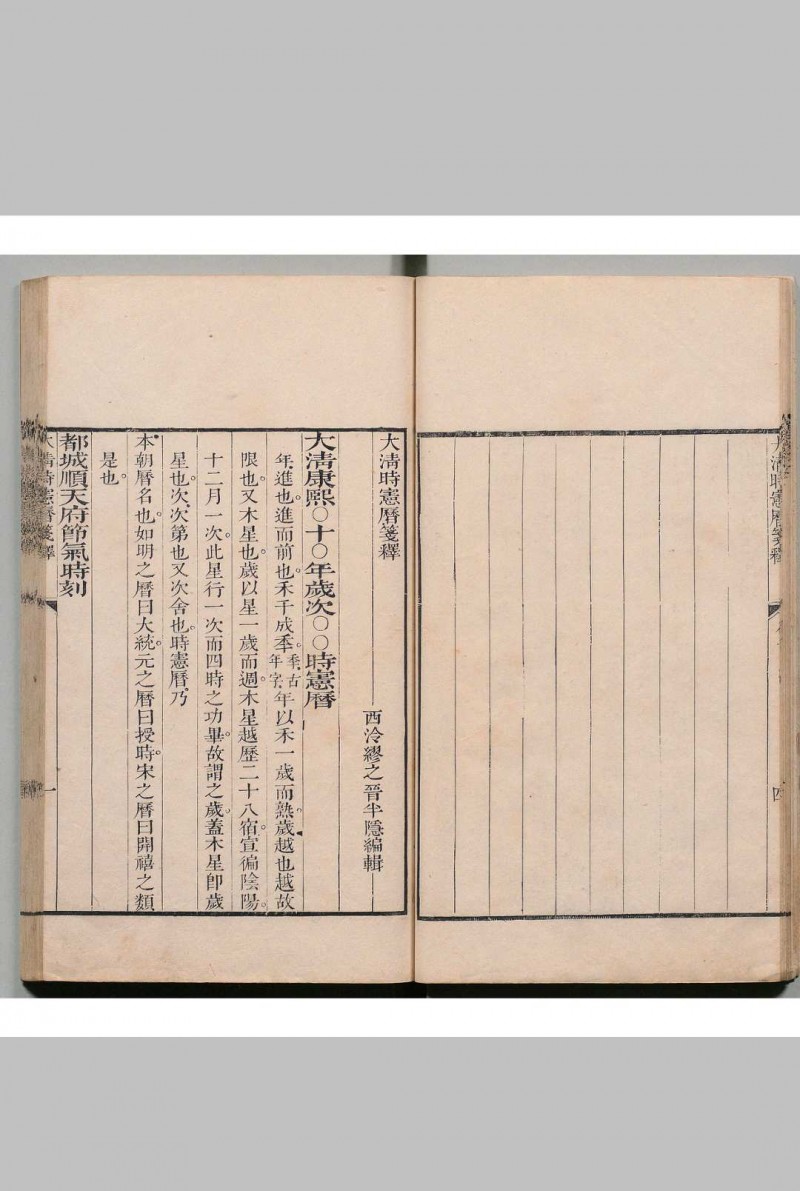 大清時憲曆箋釋
四
大清時憲曆箋釋
西泠繆之晉半隱編輯
大清康熙〇十〇年歲次〇〇時憲曆
年、進也。進而前也。禾千成秊。秊、古年字、年以禾一歲而熟。歲越也越故
限也。又木星也。歲以星一歲而週。木星越歷二十八宿。宣徧陰陽。
十二月一次。此星行一次而四時之功畢。故謂之歲。蓋木星卽歲
星也。次、次第也又次舍也。時憲曆、乃
本朝曆名也。如明之曆曰大統。元之曆曰授時。宋之曆曰開禧之類
是也。
都城順天府節氣時刻
大清時憲曆箋釋
一